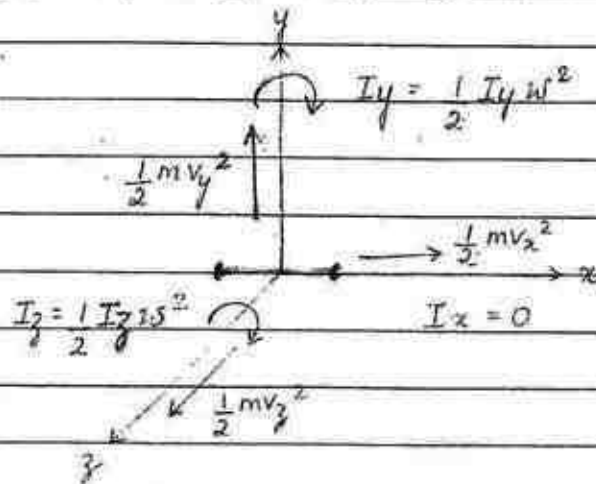 y
I_y = 1/2 I_y ω^2
1/2 m v_y^2
1/2 m v_x^2
x
I_z = 1/2 I_z ω^2
I_x = 0
1/2 m v_z^2
z